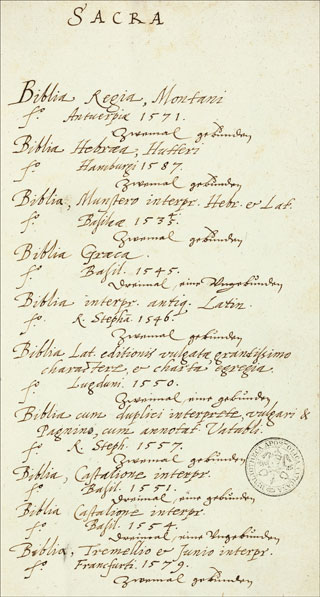 SACRA
Biblia Regia, Montani
fº. Antverpiæ 1571.
Zwemal gebunden
Biblia Hebræa, Hutteri
fº. Hamburgi 1587.
Zwemal gebunden
Biblia, Munstero interpr. Hebr. & Lat.
fº. Basileæ 1535.
Zwemal gebunden
Biblia Græca.
fº. Basil. 1545.
Dreimal, eins Ungebunden
Biblia interpr. antiq. Latin.
fº. R. Stepha. 1546.
Zwemal gebunden
Biblia Lat. editionis vulgata grandissimo
charactere, & charta egregia.
fº. Lugduni. 1550.
Zweimal, eins gebunden
Biblia cum duplici interprete, vulgari &
Pagnino, cum annotat. Vatabli.
fº. R. Steph. 1557.
Zwemal gebunden
Biblia, Castalione interpr.
fº. Basil. 1551.
Dreimal, eins gebunden
Biblia Castalione interpr.
fº. Basil. 1554.
Dreimal, eins Ungebunden
Biblia, Tremellio & Junio interpr.
fº. Francfurti. 1579.
Zwemal gebunden